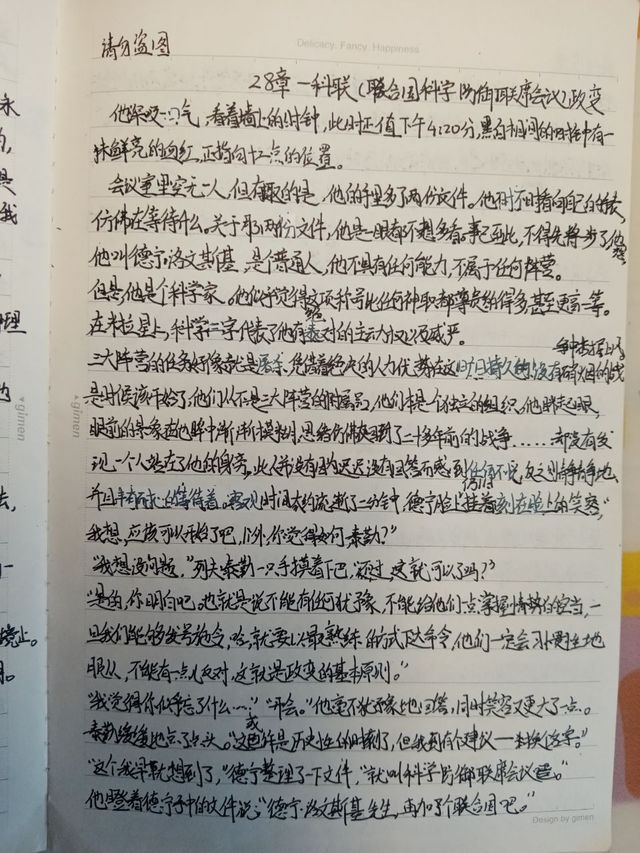 请勿盗图
Delicacy. Fancy. Happiness
28章 一科联(联合国科学防御联席会议)政变
他深吸一口气,看着墙上的时钟,此时正值下午4:20分,黑白相间的时钟中有一
抹鲜亮的血红,正指向十二点的位置。
会议室里空无一人,但有趣的是,他的手里多了两份文件。他时不时指向自己的
仿佛在等待什么。关于那两份文件,他是一眼都不想多看。事已至此,不得先将一步了他想
他叫德宁·洛文斯基,是个普通人,他不具有任何能力,不属于任何阵营。
但是,他是个科学家。他似乎觉得这项称号比任何种职都尊贵的得多,甚至更高一等。
在米拉星上,科学二字代表了他有绝对的主动力以及威严。
三大阵营的任务好像就是屠杀,凭借着绝大的人力优势在这旷日持久的没有硝烟的战
争中
是时候该开始了,他们从不是三大阵营的附属品,他们本是个独立的组织,他眯起眼,
眼前的景象在他眸中渐渐模糊,思绪仿佛回到了二十多年前的战争……却没有发
现一个人站在了他的身旁,此人并没有因为迟迟没有回答而感到任何不悦,反之则静静地
并且的等待着。时间大约流逝了二分钟,德宁脸上挂着刻在脸上的笑容,“
我想,应该可以开始了吧,你觉得如何泰勒?”
“我想没问题。”列夫泰勒一只手摸着下巴,“不过,这就可以了吗?”
“是的,你明白吧。也就是说不能有任何犹豫,不能给他们一点掌握情势的空当,一
旦我们能够发号施令,哈,就要以最熟练的方式下达命令,他们一定会习惯性地
服从,不能有一点儿反对,这就是政变的基本原则。”
“我觉得你似乎忘了什么…”“开会。”他毫不犹豫地回答,同时笑容又更大了一点。
泰勒缓缓地点了点头。“这或许是历史性的时刻了,但我有个建议——”
“这个我早就想到了,”德宁整理了一下文件,“就叫科学防御联席会议。”
他瞪着德宁手中的文件说:“德宁·洛文斯基先生,再加个联合国吧。”
Design by gimen
gimen
gimen